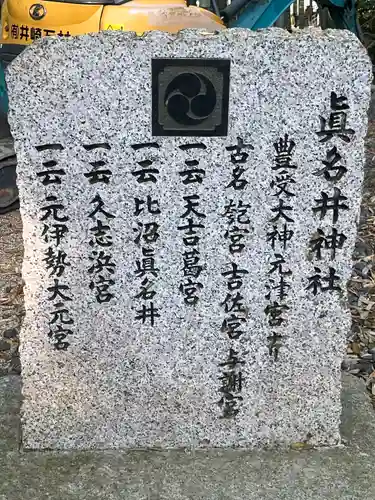 眞名井神社
豊受大神元津宮也
古名 乾宮 吉佐宮 与謝宮
一云 天吉葛宮
一云 比沼眞名井
一云 久志浜宮
一云 元伊勢大元宮